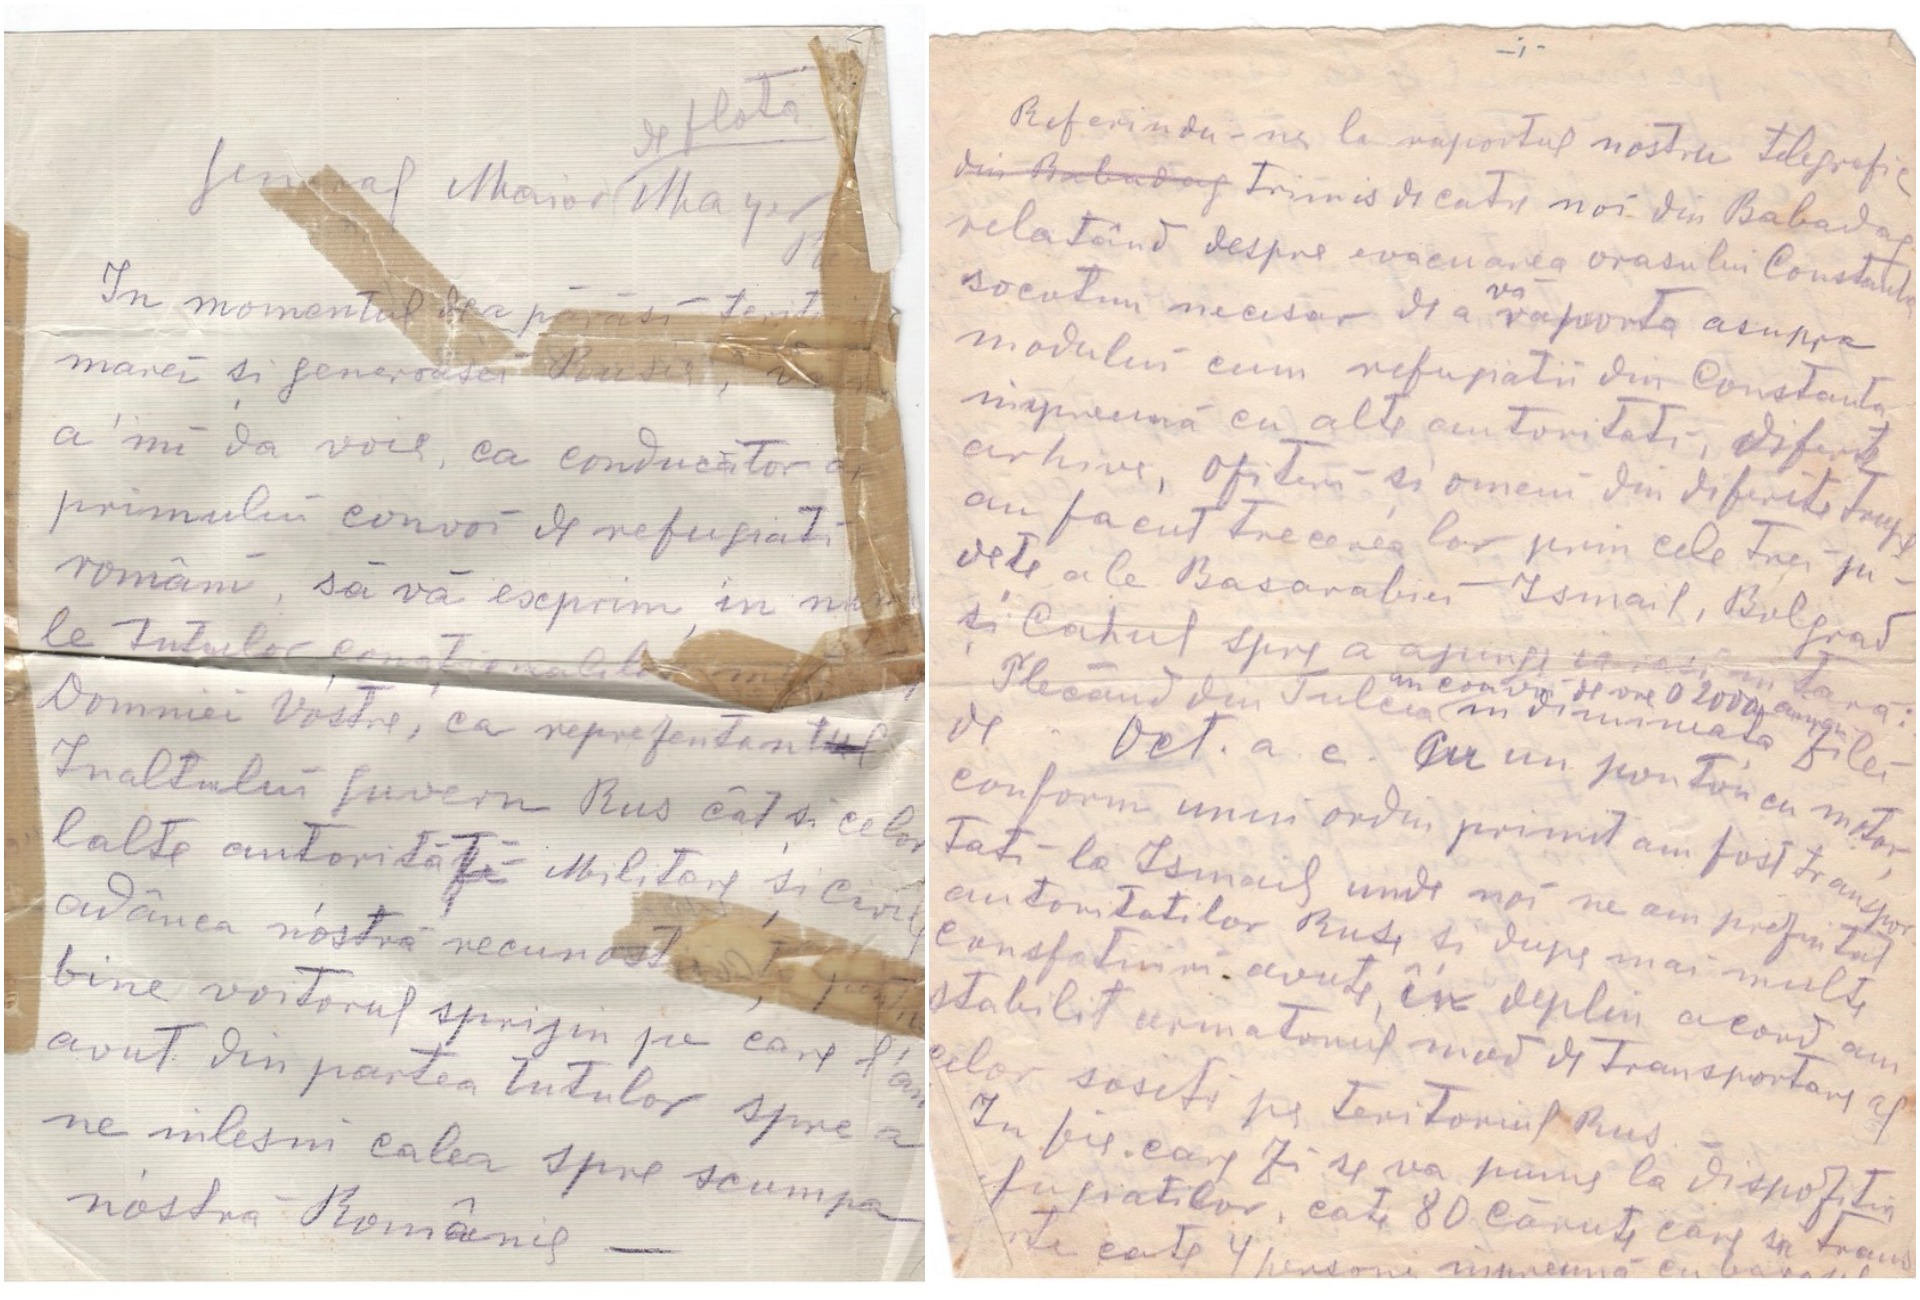 de flota
General Maior Mayer
In momentul de a părăsi
marei si generoasei Rusii,
a'mi da voie, ca conducător
primului convoi de refugiati
români, să vă exprim, in
le tutulor conationalilor
Domniei Vostre, ca reprezentantul
Inaltului Guvern Rus cât si celor
lalte autorități Militare si civile
adânca nostră
bine voitorul sprijin pe care l'am
avut din partea tutulor spre a
ne inlesni calea spre scumpa
nostră Românie —
-1-
Referindu-ne la raportul nostru telegrafic
din Babadag trimis de catre noi din Babadag
relatând despre evacuarea orasului Constanta
socotim necesar de a vă raporta asupra
modului cum refugiatii din Constanta
impreună cu alte autoritati, diferite
arhive, ofiteri si omeni din diferite trupe
au facut trecerea lor prin cele trei ju-
dete ale Basarabiei – Ismail, Bolgrad
si Cahul spre a ajunge in tară:
Plecând din Tulcea un convoi de vre o 2000 in dimineata zilei
de Oct. a. c. cu un ponton cu motor,
conform unui ordin primit am fost transpor-
tati la Ismail unde noi ne am prezintat
autoritatilor Ruse si dupe mai multe
consfatuiri avute, in deplin acord am
stabilit urmatorul mod de transportare al
celor sositi pe teritoriul Rus.
In fie-care zi se va pune la dispozitia
fugiatilor, cate 80 cărute care să trans
te cate 4 persone impreună cu